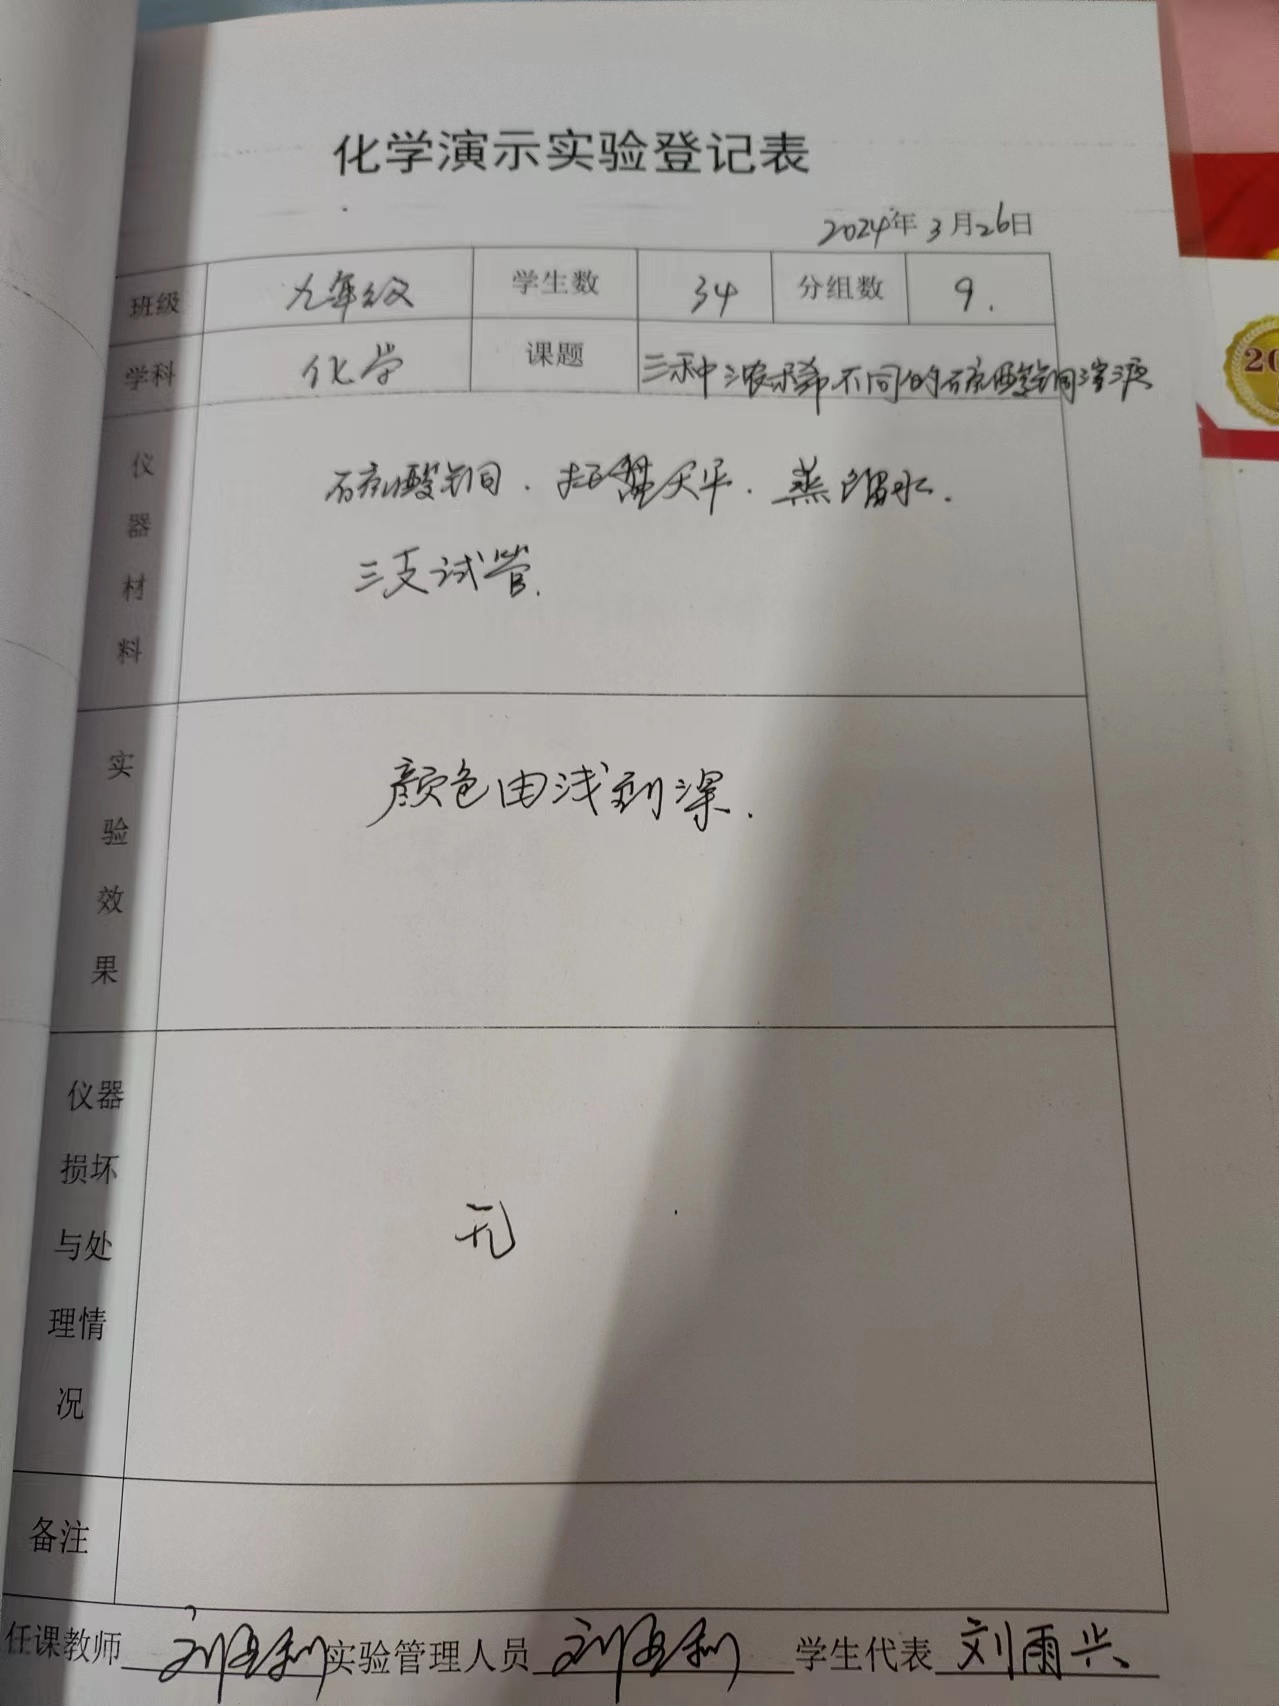 化学演示实验登记表
2024年3月26日
班级 九年级 学生数 34 分组数 9.
学科 化学 课题 三种浓稀不同的硫酸铜溶液
仪器材料 硫酸铜.托盘天平.蒸馏水.
三支试管.
实验效果 颜色由浅到深.
仪器损坏与处理情况 无
备注
任课教师 刘 利 实验管理人员 刘 利 学生代表 刘雨兴
20